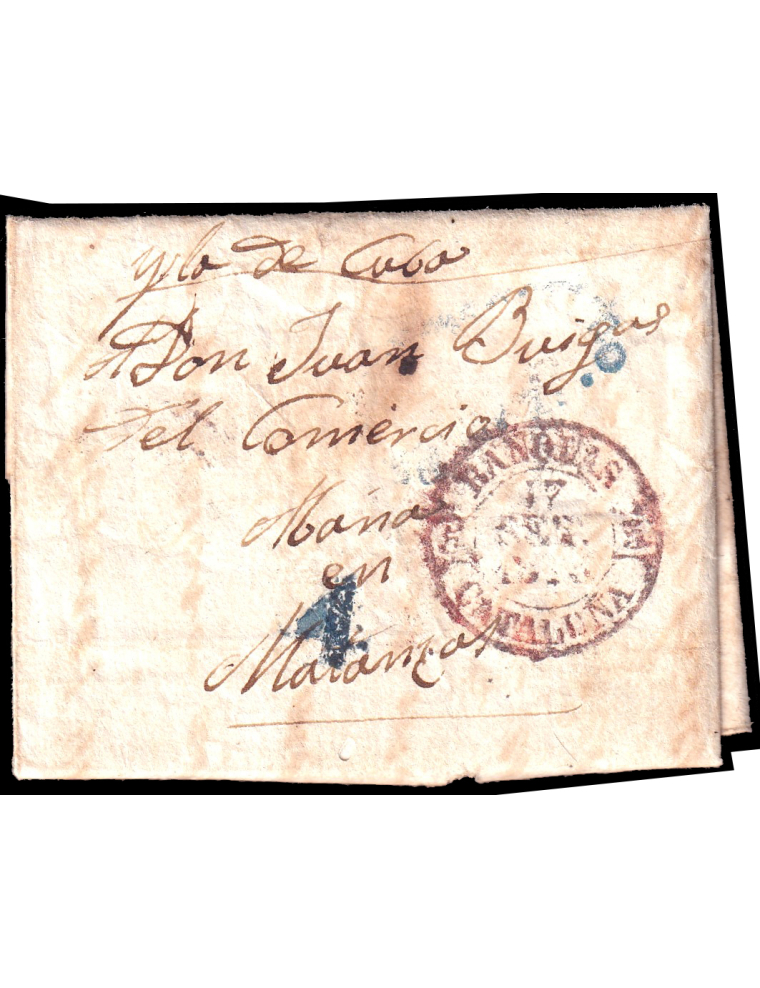 Ysla de Cuba
A Don Juan Buigas
del Comercio
en
Matanzas
4.
BAÑOLAS
17
SET.
CATALUÑA